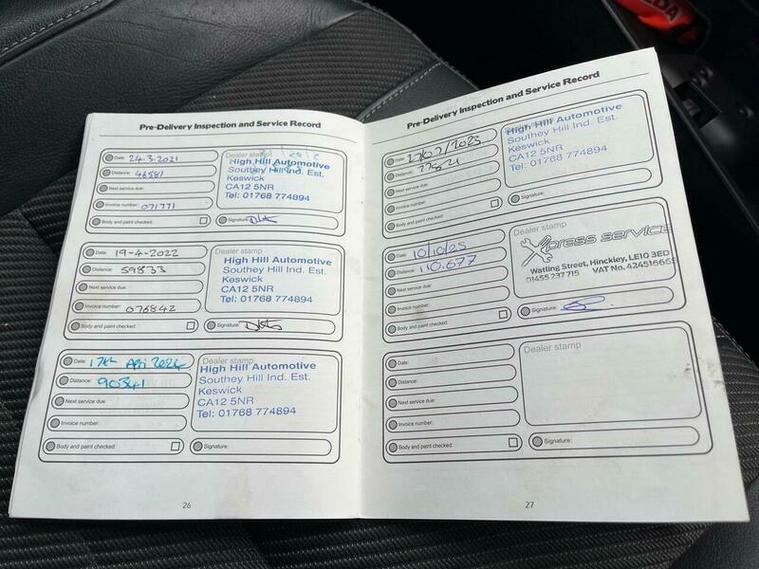 Pre-Delivery Inspection and Service Record
Date: 24-3-2021
Distance: 46581
Next service due:
Invoice number: 071771
Body and paint checked:
Dealer stamp
High Hill Automotive
Southey Hill Ind. Est.
Keswick
CA12 5NR
Tel: 01768 774894
Signature:
Date: 19-4-2022
Distance: 59833
Next service due:
Invoice number: 076842
Body and paint checked:
Dealer stamp
High Hill Automotive
Southey Hill Ind. Est.
Keswick
CA12 5NR
Tel: 01768 774894
Signature:
Date: 17th Apri 2024
Distance: 90341
Next service due:
Invoice number:
Body and paint checked:
Dealer stamp
High Hill Automotive
Southey Hill Ind. Est.
Keswick
CA12 5NR
Tel: 01768 774894
Signature:
26
Pre-Delivery Inspection and Service Record
Date: /2023
Distance:
Next service due:
Invoice number:
Body and paint checked:
High Hill Automotive
Southey Hill Ind. Est.
Keswick
CA12 5NR
Tel: 01768 774894
Signature:
Date: 10/10/25
Distance: 110,677
Next service due:
Invoice number:
Body and paint checked:
Dealer stamp
Xpress service
Watling Street, Hinckley, LE10 3ED
01455 237 715 VAT No. 424516665
Signature:
Date:
Distance:
Next service due:
Invoice number:
Body and paint checked:
Dealer stamp
Signature:
27